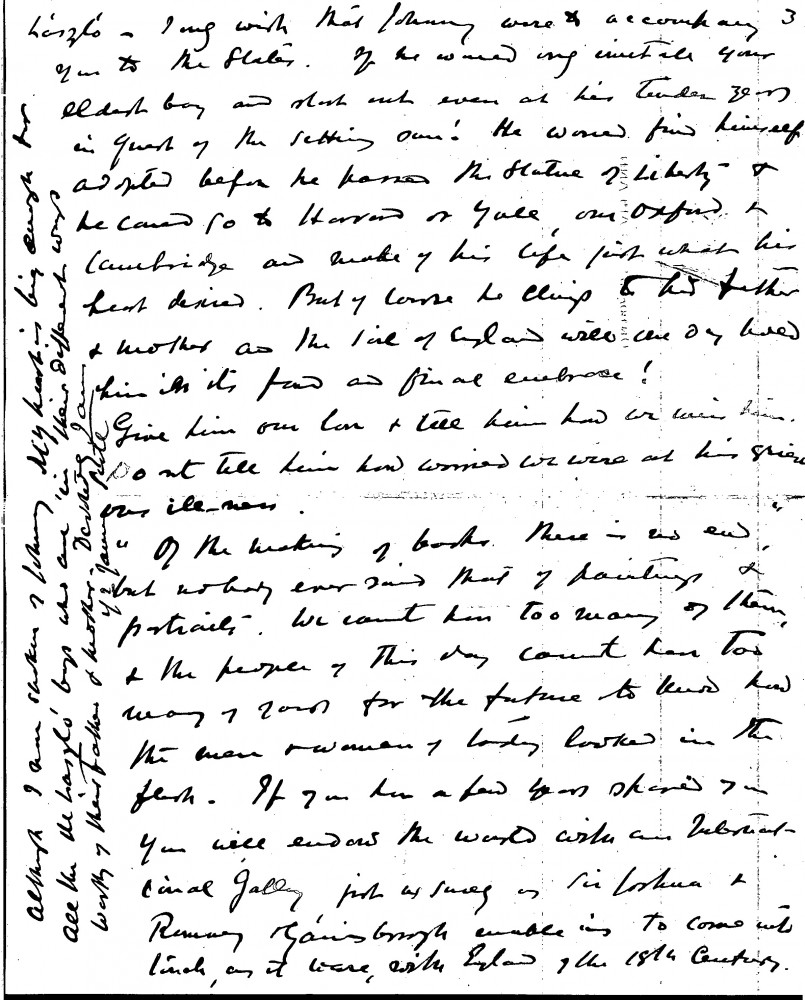 László – I only wish that Johnny were to accompany 3
you to the States. If he would only imitate your
eldest boy and start out even at his tender years
in quest of the setting sun! He would find himself
adopted before he passed the Statue of Liberty &
he could go to Harvard or Yale, our Oxford &
Cambridge and make of his life just what his
heart desired. But of course he clings to his father
& mother and the soil of England will one day hold
him in its fond and final embrace!
Give him our love & tell him how we miss him.
Do not tell him how worried we were at his griev-
ous ill-ness.
"Of the making of books there is no end,"
but nobody ever said that of paintings &
portraits. We cannot have too many of them,
& the people of this day cannot have too
many of yours for the future to know how
the men & women of today looked in the
flesh. If you have a few years spared you
you will endow the world with an Internat-
ional Gallery just as surely as Sir Joshua &
Romney & Gainsborough enable us to come into
touch, as it were, with England of the 18th Century.
Although I am speaking of Johnny my heart is big enough for
all the de László boys who are in their different ways
worthy of their father & mother.